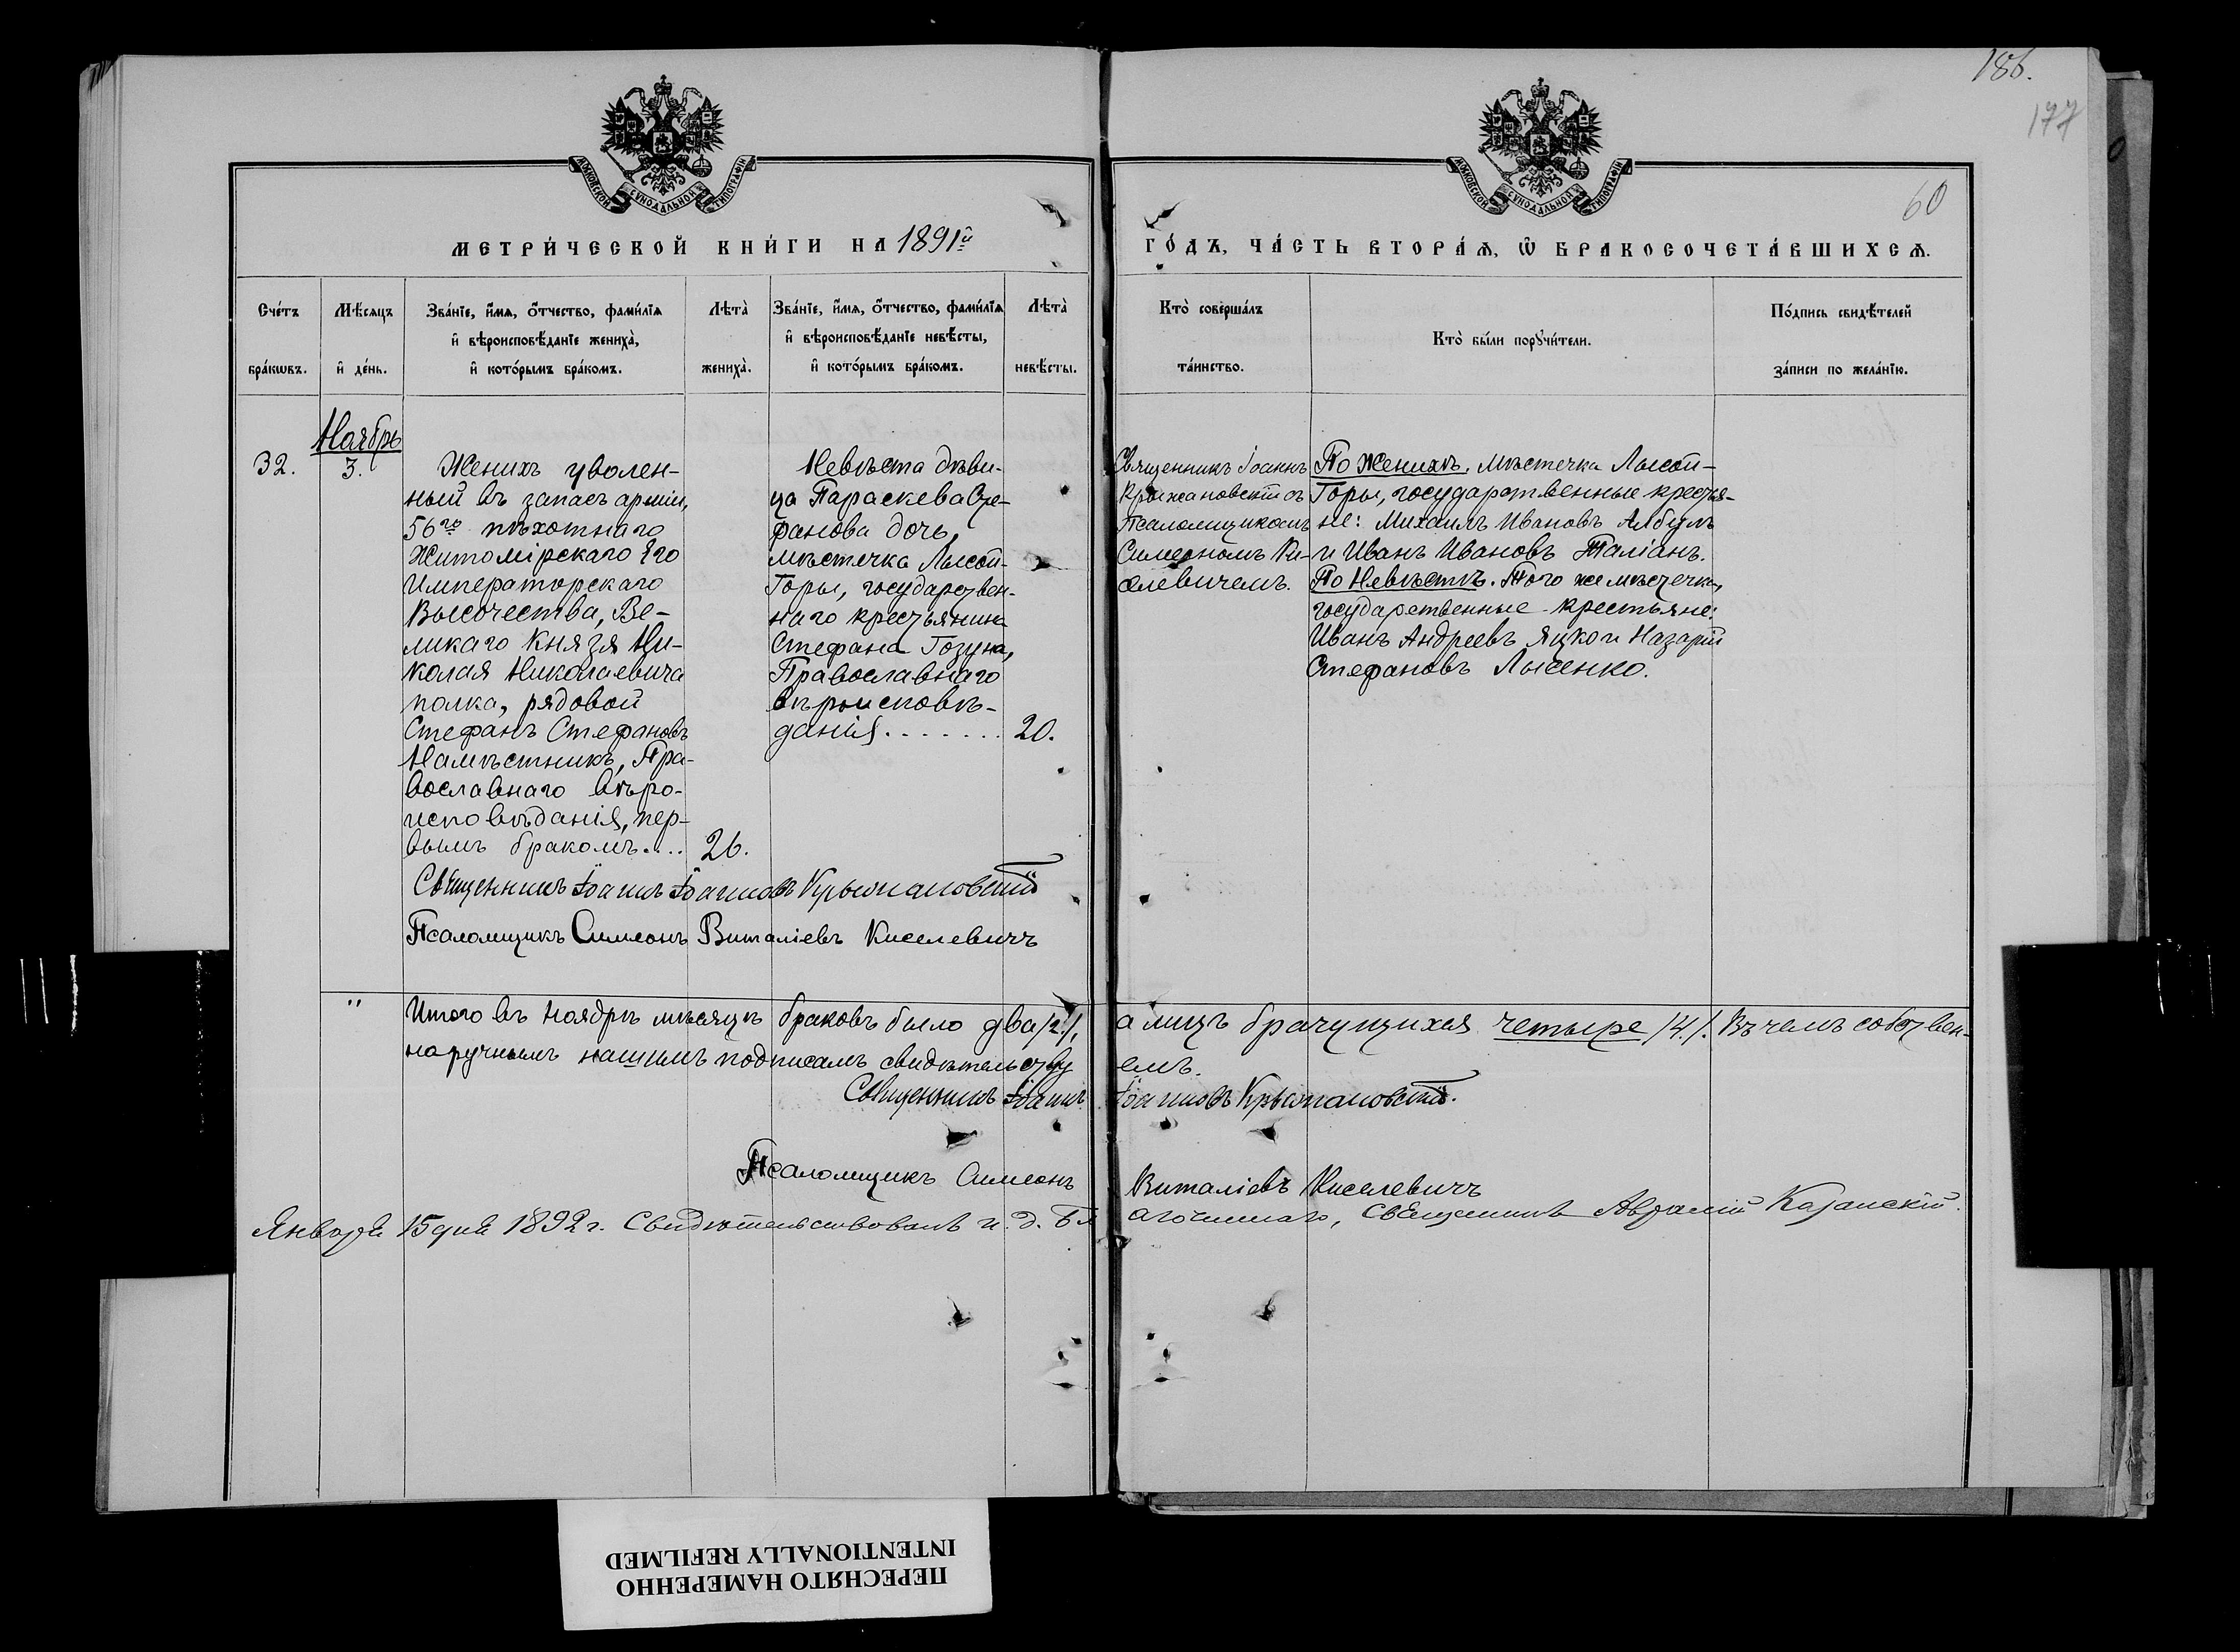 186.
177
60
МОСКОВСКОЙ СУНОДАЛЬНОЙ ТИПОГРАФІИ
МОСКОВСКОЙ СУНОДАЛЬНОЙ ТИПОГРАФІИ
МЕТРИ́ЧЕСКОЙ КНИ́ГИ НА 1891й
ГО́ДЪ, ЧА́СТЬ ВТОРА́Ѧ, Ѡ БРАКОСОЧЕТА́ВШИХСѦ.
Сче́тъ
бра́кѡвъ.
Мѣ́сяцъ
и҆ де́нь.
Зва́нїе, и҆́мѧ, ѻ҆́тчество, фами́лїѧ
и҆ вѣроисповѣ́данїе жениха̀,
и҆ кото́рымъ бра́комъ.
Лѣта̀
жениха̀.
Зва́нїе, и҆́мѧ, ѻ҆́тчество, фами́лїѧ
и҆ вѣроисповѣ́данїе невѣ́сты,
и҆ кото́рымъ бра́комъ.
Лѣта̀
невѣ́сты.
Кто̀ соверша́лъ
та́инство.
Кто̀ бы́ли порꙋчи́тели.
По́дпись свидѣ́телей
за́писи по жела́нїю.
Ноябрь
32.
3.
Женихъ уволен-
ный въ запасъ арміи,
56го пѣхотнаго
Житомірскаго Его
Императорскаго
Высочества, Ве-
ликаго Князя Ни-
колая Николаевича
полка, рядовой
Стефанъ Стефановъ
Намѣстникъ, Пра-
вославнаго вѣро-
исповѣданія, пер-
вымъ бракомъ....
26.
Невѣста дѣви-
ца Параскева Сте-
фанова дочь,
мѣстечка Лысой-
Горы, государствен-
наго крестьянина
Стефана Гозуна,
Православнаго
вѣроисповѣ-
данія.......
20.
Священникъ Іоаннъ
Крыжановскій съ
Псаломщикомъ
Симеономъ Ки-
селевичемъ.
По Женихѣ. мѣстечка Лысой-
Горы, государственные крестья-
не: Михаилъ Ивановъ Албулъ
и Иванъ Ивановъ Таліанъ.
По Невѣстѣ. Того же мѣстечка,
государственные крестьяне:
Иванъ Андреевъ Яцко и Назарій
Стефановъ Лысенко.
Священникъ Іоаннъ Іоанновъ Крыжановскій
Псаломщикъ Симеонъ Виталіевъ Киселевичъ
" Итого въ Ноябрѣ мѣсяцѣ браковъ было два /2/, а лицъ брачущихся четыре /4/. Въ чемъ собствен-
наручнымъ нашимъ подписамъ свидѣтельствуемъ.
Священникъ Іоаннъ Іоанновъ Крыжановскій.
Псаломщикъ Симеонъ Виталіевъ Киселевичъ
Января 15 дня 1892 г. Свидѣтельствовалъ и. д. Благочиннаго, Священникъ Авраамій Казанскій.
ПЕРЕСНЯТО НАМЕРЕННО
INTENTIONALLY REFILMED